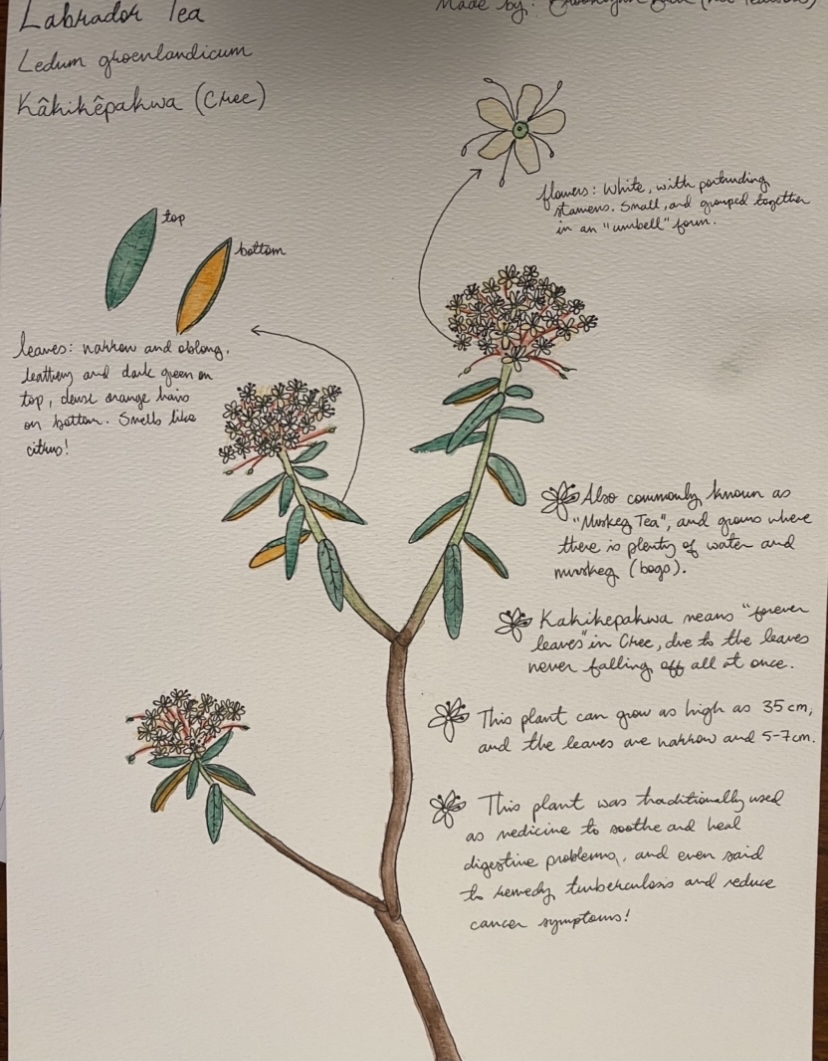 Labrador Tea
Made by:
Ledum groenlandicum
Kâkikêpakwa (Cree)
flowers: White, with protruding
stamens. Small, and grouped together
in an "umbell" form.
top
bottom
leaves: narrow and oblong,
leathery and dark green on
top, dense orange hairs
on bottom. Smells like
citrus!
Also commonly known as
"Muskeg Tea", and grows where
there is plenty of water and
muskeg (bogs).
Kakikepakwa means "forever
leaves" in Cree, due to the leaves
never falling off all at once.
This plant can grow as high as 35 cm,
and the leaves are narrow and 5-7cm.
This plant was traditionally used
as medicine to soothe and heal
digestive problems, and even said
to remedy tuberculosis and reduce
cancer symptoms!